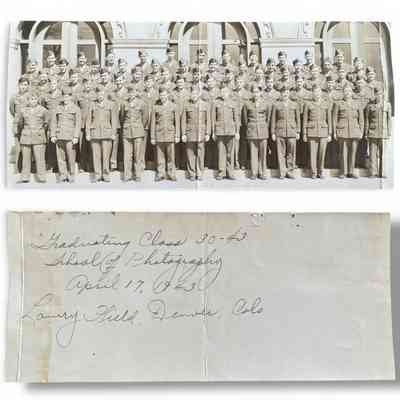 Graduating Class 30-43
School of Photography
April 17, 1943
Lowry Field Denver, Colo